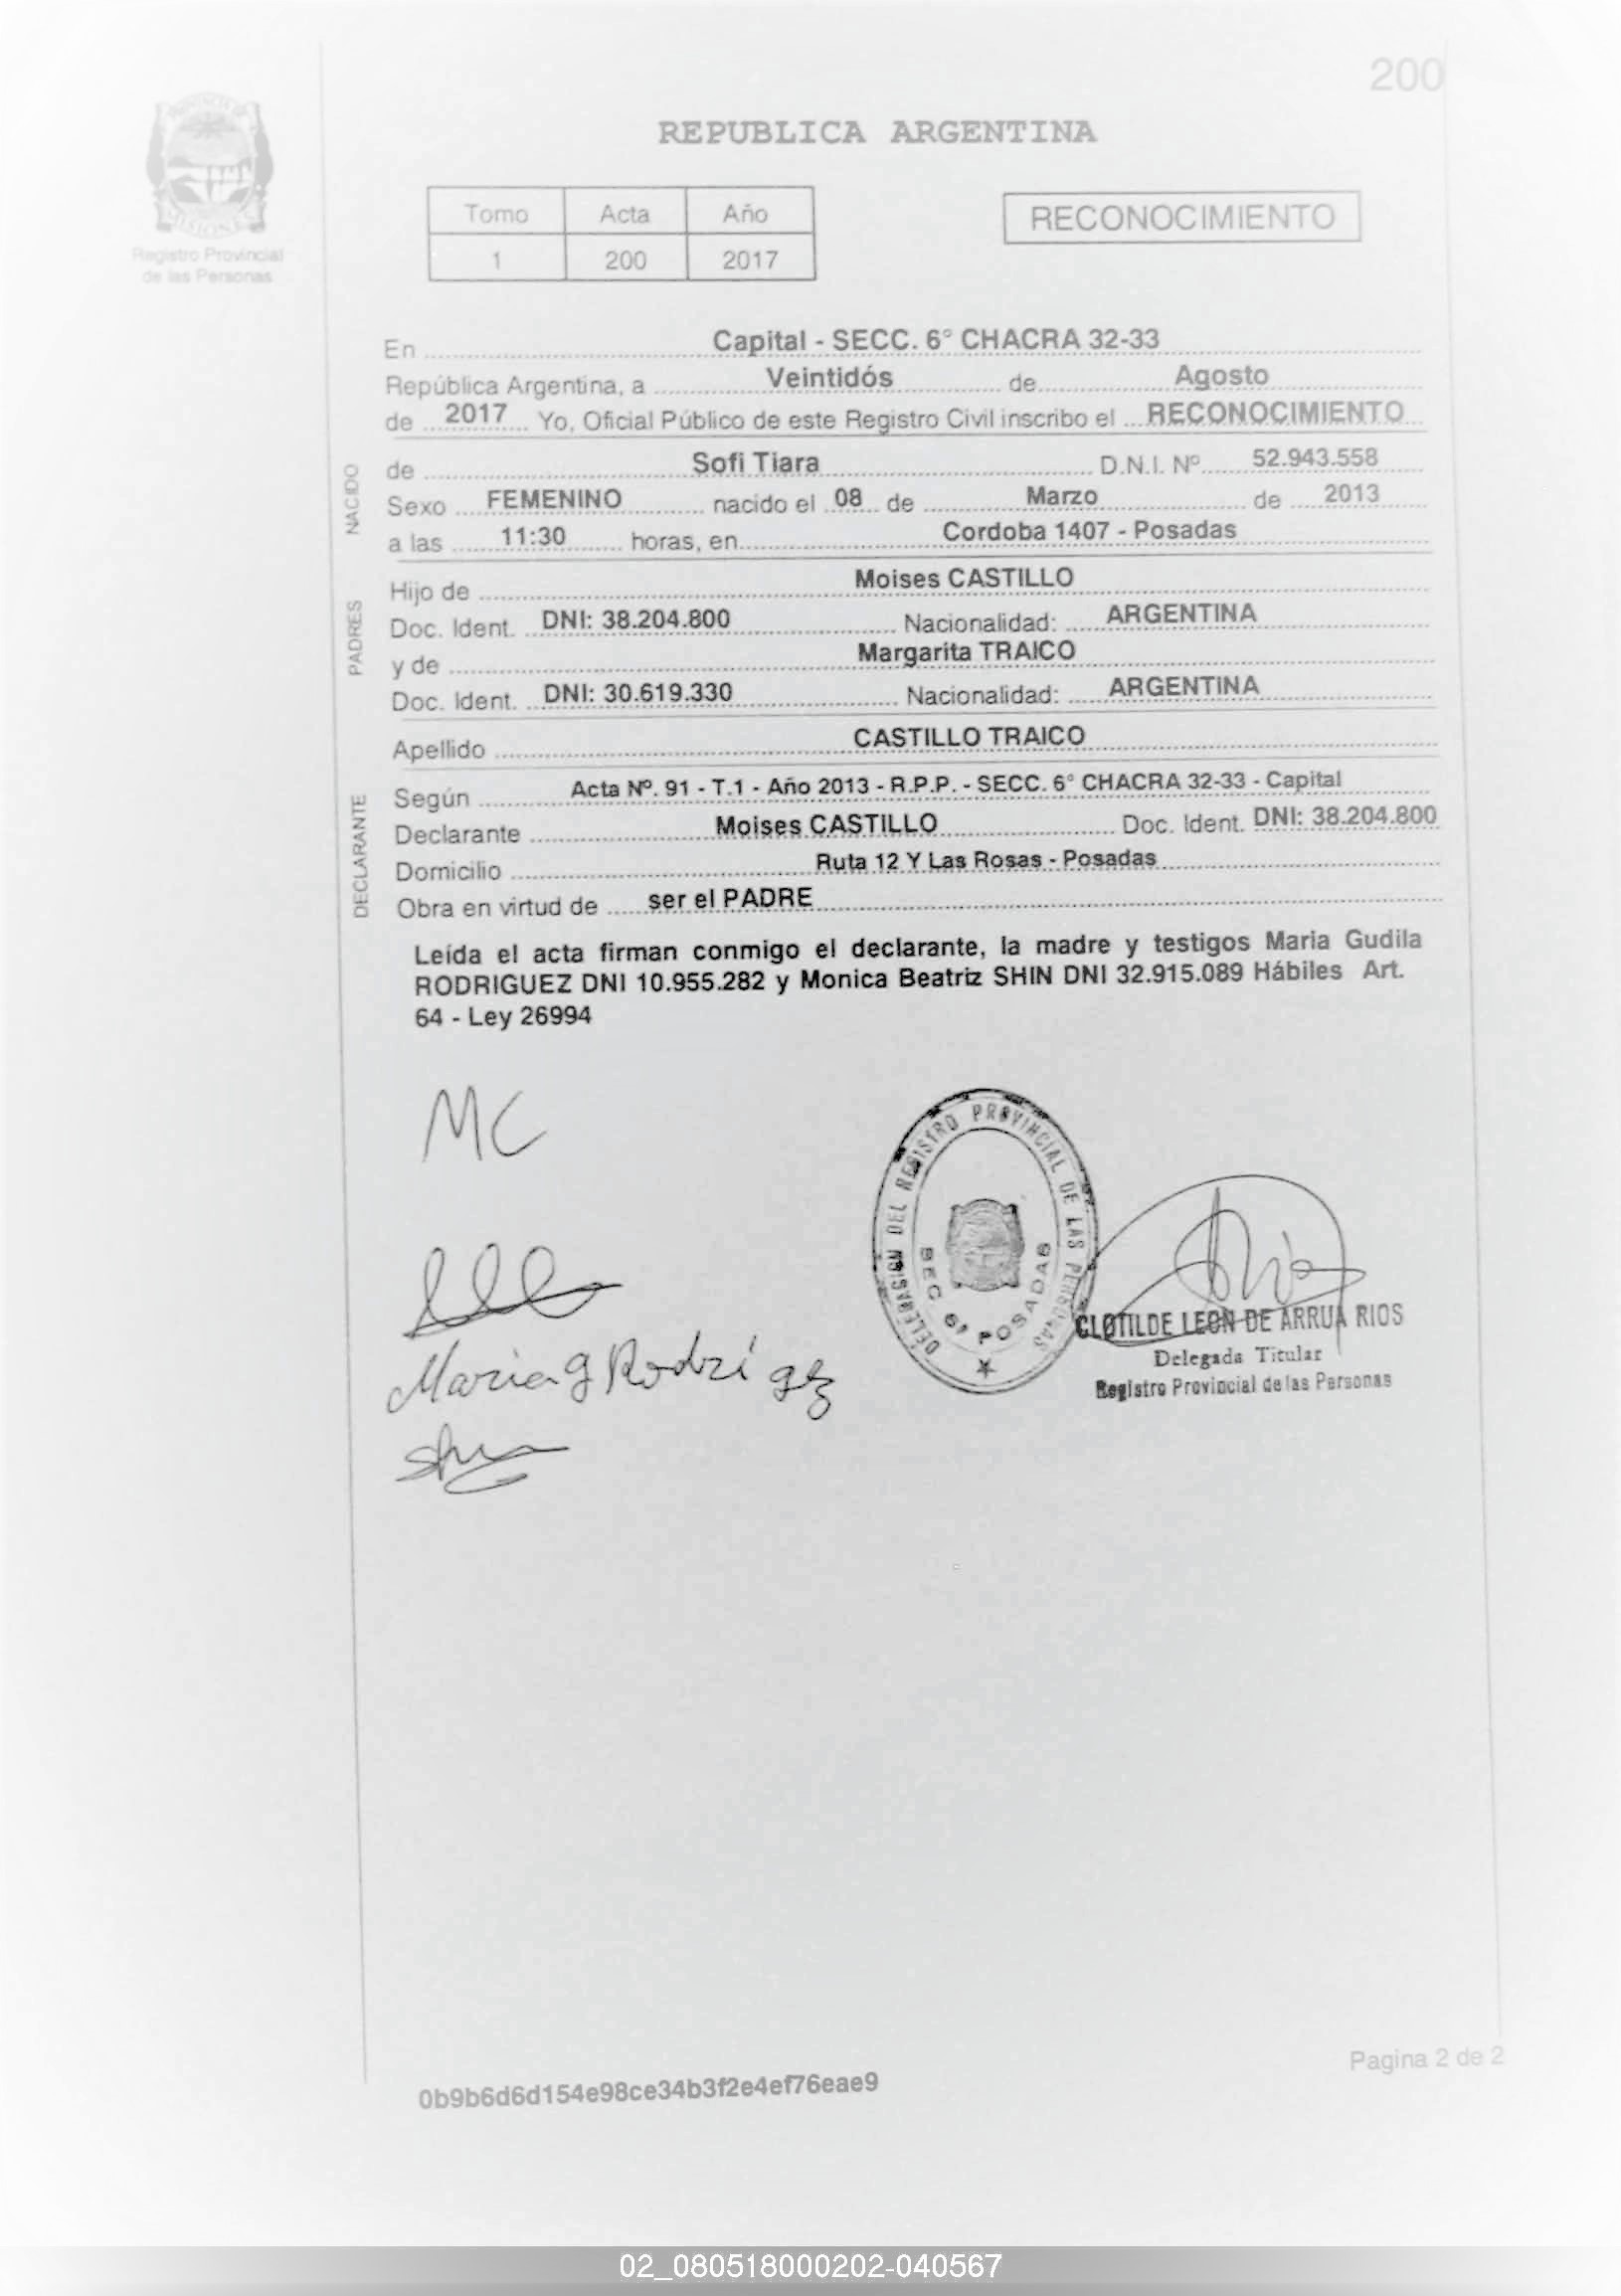 200
PROVINCIA DE
MISIONES
Registro Provincial
de las Personas
REPUBLICA ARGENTINA
Tomo Acta Año
1 200 2017
RECONOCIMIENTO
En Capital - SECC. 6° CHACRA 32-33
República Argentina, a Veintidós de Agosto
de 2017 Yo, Oficial Público de este Registro Civil inscribo el RECONOCIMIENTO
NACIDO
de Sofi Tiara D.N.I. Nº 52.943.558
Sexo FEMENINO nacido el 08 de Marzo de 2013
a las 11:30 horas, en Cordoba 1407 - Posadas
PADRES
Hijo de Moises CASTILLO
Doc. Ident. DNI: 38.204.800 Nacionalidad: ARGENTINA
y de Margarita TRAICO
Doc. Ident. DNI: 30.619.330 Nacionalidad: ARGENTINA
Apellido CASTILLO TRAICO
DECLARANTE
Según Acta Nº. 91 - T.1 - Año 2013 - R.P.P. - SECC. 6° CHACRA 32-33 - Capital
Declarante Moises CASTILLO Doc. Ident. DNI: 38.204.800
Domicilio Ruta 12 Y Las Rosas - Posadas
Obra en virtud de ser el PADRE
Leída el acta firman conmigo el declarante, la madre y testigos Maria Gudila
RODRIGUEZ DNI 10.955.282 y Monica Beatriz SHIN DNI 32.915.089 Hábiles Art.
64 - Ley 26994
MC
DELEGACION DEL REGISTRO PROVINCIAL DE LAS PERSONAS
SEC 6ª POSADAS
CLOTILDE LEON DE ARRUA RIOS
Delegada Titular
Registro Provincial de las Personas
Maria g Rodri gez
Shin
Pagina 2 de 2
0b9b6d6d154e98ce34b3f2e4ef76eae9
02_080518000202-040567